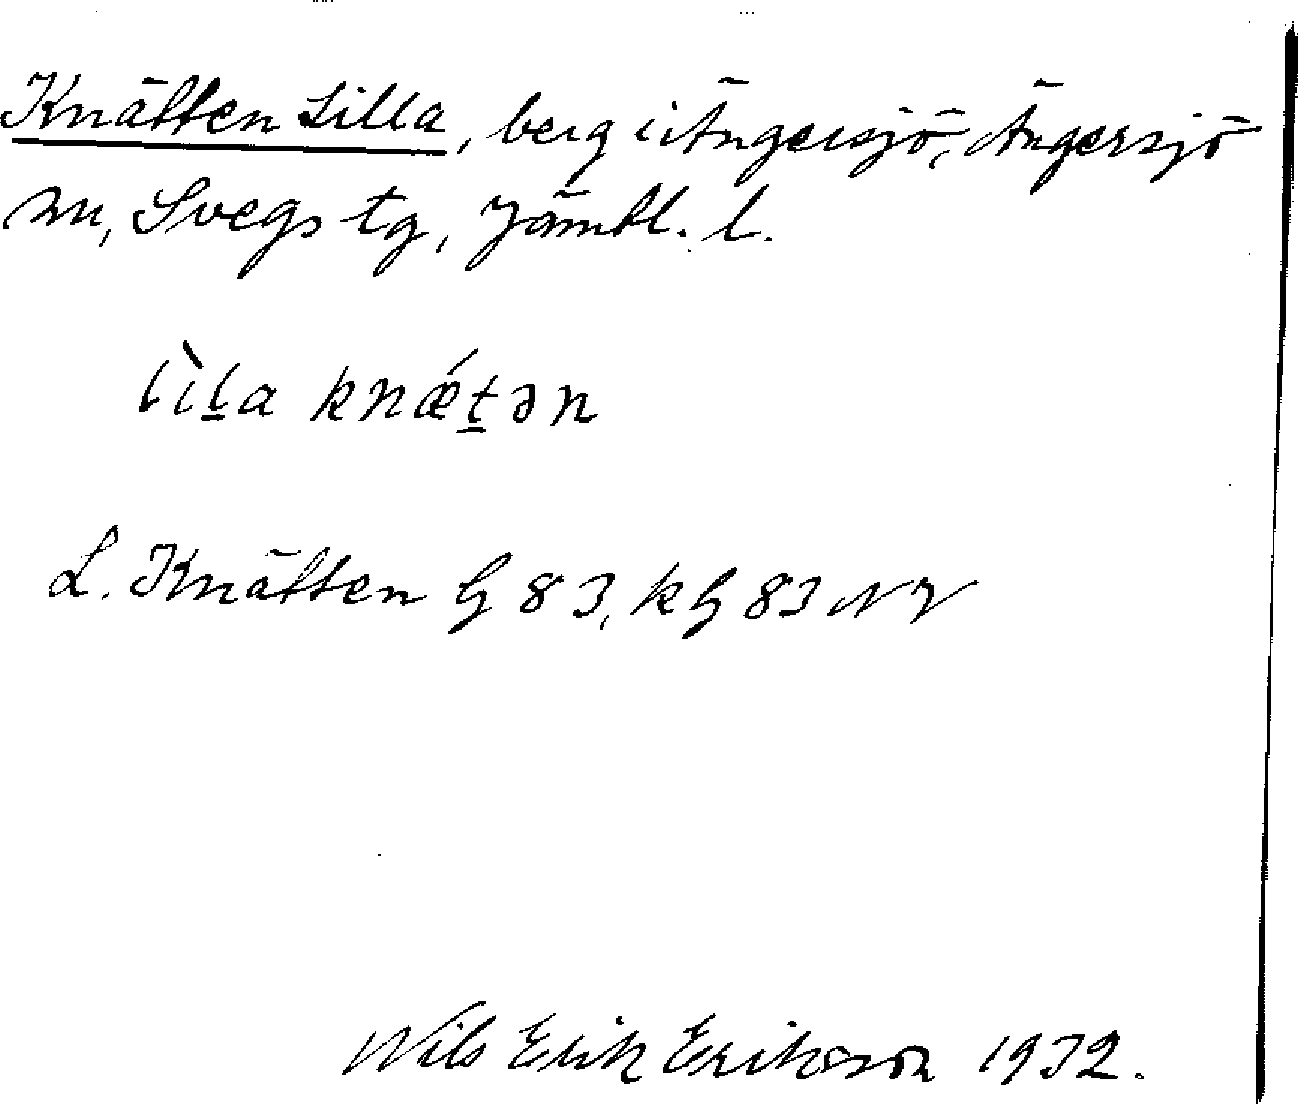 Knätten Lilla, berg i Ängersjö, Ängersjö
sn, Svegs tg, Jämtl. l.
lìl̠a knǽt̠ən
L. Knätten G 83, kG 83 NV
Nils Erik Eriksson 1932.